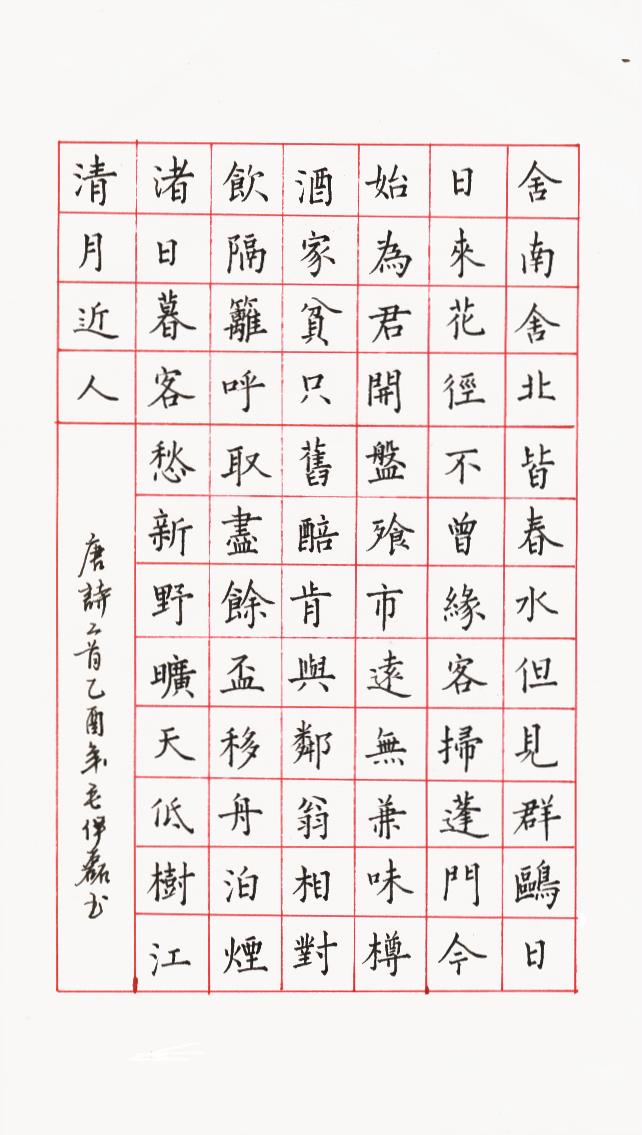 舍南舍北皆春水但見群鷗日
日來花徑不曾緣客掃蓬門今
始為君開盤飱市遠無兼味樽
酒家貧只舊醅肯與鄰翁相對
飲隔籬呼取盡餘盃移舟泊煙
渚日暮客愁新野曠天低樹江
清月近人
唐詩二首乙酉年毛伊磊书